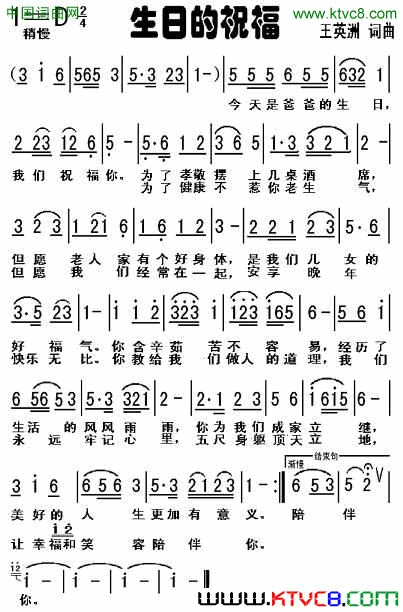 中国词曲网
www.ktvc8.com
1=D 2/4
稍慢
生日的祝福
王英洲 词曲
(3 i 6 | 5 5 5 | 5·3 23 | 1-) | 5 5 5 | 5 6 5 | 632 1 |
今天是爸爸的生日,
2 23 | 12 6 | 5 - | 5·6 | 1 2 | 6·1 23 | 3·5 |
我们祝福你。为了孝敬摆上几桌酒席,
为了健康不惹你老生气,
3 2 3 | 0 2 1 2 | 1 6 1 2 | 3 - | 2 2 1 | 2 2 3 | 5·6 |
但愿老人家有个好身体,是我们儿女的
但愿我们经常在一起,安享晚年
1·3 23 | 1- | i·i i 2 | 323 i | 1 23 165 | 6 - | 5 5 6 |
好福气。你含辛茹苦不容易,经历了
快乐无比。你教给我们做人的道理,我们
6 56 53 | 5·3 321 | 2 - | 2·1 | 3 5 | 2·3 5 | i 6i5 |
生活的风风雨雨,你为我们成家立继,
永远牢记心里,五尺身躯顶天立地,
渐慢
结束句
3 i 6 | (56 5 | 5·5 23 | 1 - :|| 6 5 3 | 5 2 V |
美好的人生更加有意义。陪伴
i 2
让幸福和笑容陪伴你。
i 2
i - | i - | i - | i-) ||
你。
WWW.KTVC8.COM